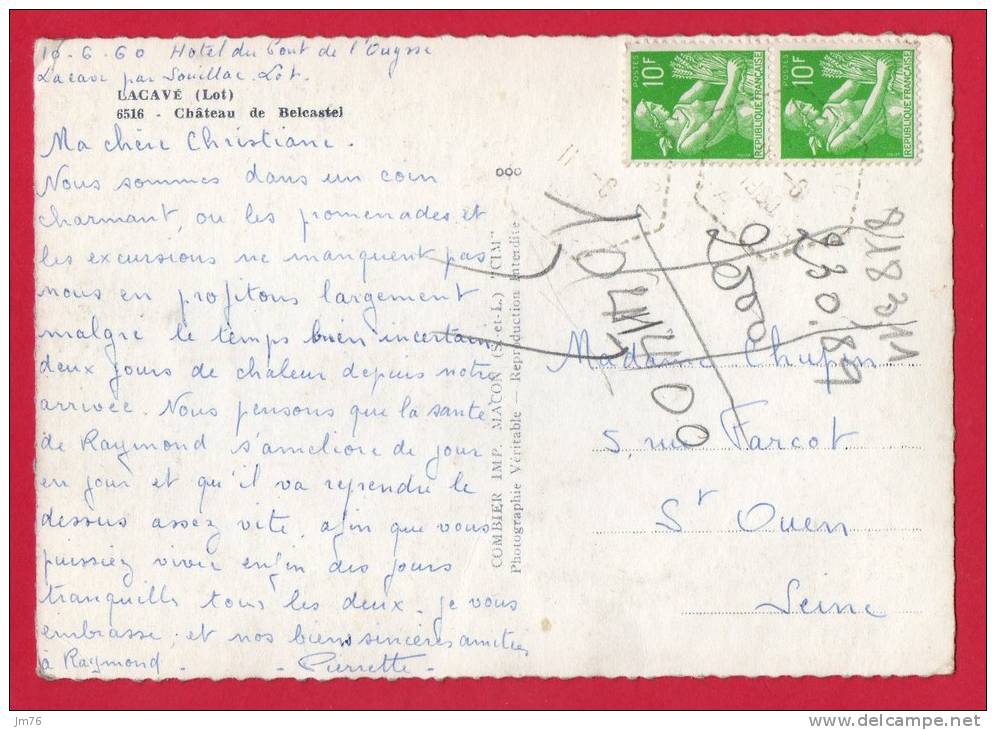 10-6-60 Hotel du Pont de l'Ouysse
Lacave par Souillac. Lot.
LACAVE (Lot)
6516 - Château de Belcastel
Ma chère Christiane.
Nous sommes dans un coin
charmant, ou les promenades et
les excursions ne manquent pas
nous en profitons largement
malgré le temps bien incertain
deux jours de chaleur depuis notre
arrivée. Nous pensons que la santé
de Raymond s'améliore de jour
en jour et qu'il va reprendre le
dessus assez vite, afin que vous
puissiez vivre enfin des jours
tranquilles tous les deux. Je vous
embrasse, et nos bien sincères amitiés
à Raymond - - Pierrette -
ooo
COMBIER IMP. MACON (S.-et-L.) "CIM"
Photographie Véritable — Reproduction Interdite
POSTES
10F
REPUBLIQUE FRANÇAISE
POSTES
10F
REPUBLIQUE FRANÇAISE
Madame Chupin
5, rue Farcot
St Ouen
Seine
jm76
www.delcampe.net